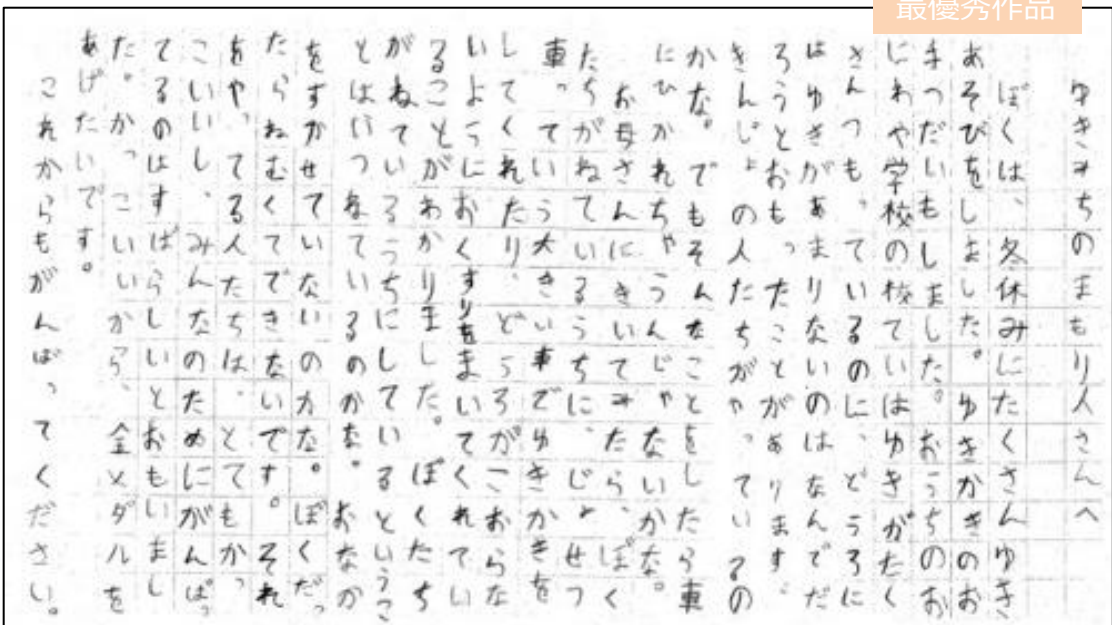 最優秀作品
ゆきみちのまもり人さんへ
ぼくは、冬休みにたくさんゆき
あそびをしました。ゆきかきのお
手つだいもしました。おうちのお
にわや学校の校ていはゆきがたく
さんつもっているのに、どうろに
はゆきがあまりないのはなんでだ
ろうとおもったことがあります。
きんじょの人たちがやっているの
かな。でもそんなことをしたら車
にひかれちゃうんじゃないかな。
お母さんにきいてみたら、ぼく
たちがねているうちに、じょせつ
車っていう大きい車でゆきかきを
してくれたり、どうろがこおらな
いようにおくすりをまいてくれてい
ることがわかりました。ぼくたち
がねているうちにしているというこ
とはいつねているのかな。おなか
をすかせていないのかな。ぼくだっ
たらねむくてできないです。それ
をやってる人たちは、とてもかっ
こいいし、みんなのためにがんばっ
てるのはすばらしいとおもいまし
た。かっこいいから、金メダルを
あげたいです。
これからもがんばってください。